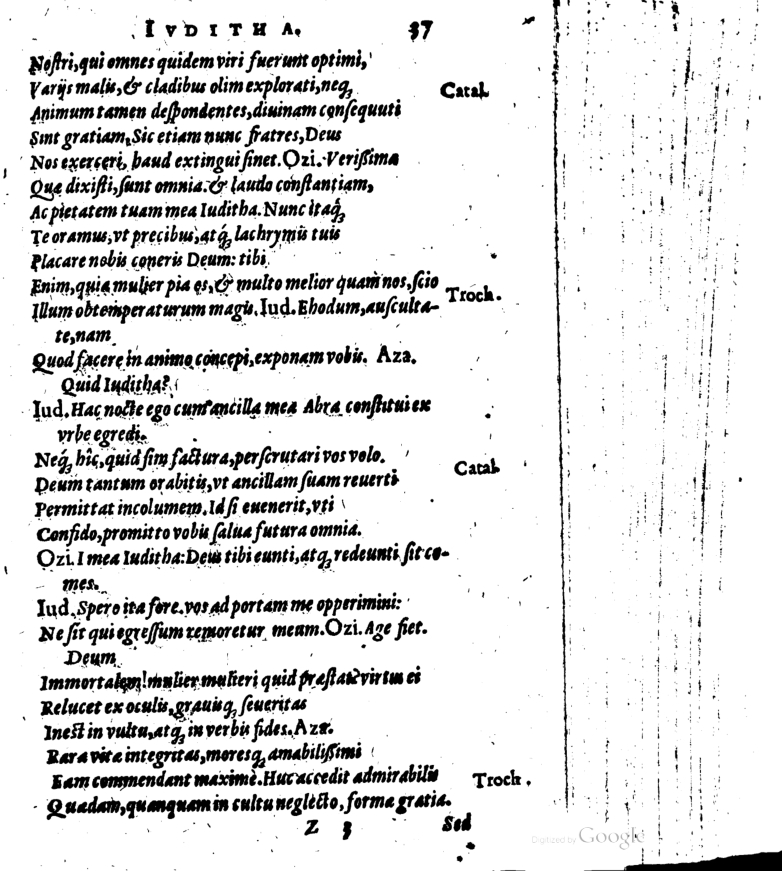 IVDITHA. 37
Nostri, qui omnes quidem viri fuerunt optimi,
Varijs malis, & cladibus olim explorati, neq; Catal.
Animum tamen despondentes, diuinam consequuti
Sint gratiam, Sic etiam nunc fratres, Deus
Nos exerceri, haud extingui sinet. Ozi. Verißima
Quæ dixisti, sunt omnia: & laudo constantiam,
Ac pietatem tuam mea Iuditha. Nunc itaq;
Te oramus, vt precibus, atq; lachrymis tuis
Placare nobis coneris Deum: tibi
Enim, quia mulier pia es, & multo melior quam nos, scio
Illum obtemperaturum magis. Iud. Ehodum, ausculta- Troch.
te, nam
Quod facere in animo concepi, exponam vobis. Aza.
Quid Iuditha?
Iud. Hac nocte ego cum ancilla mea Abra constitui ex
vrbe egredi.
Neq; hîc, quid sim factura, perscrutari vos volo.
Deum tantum orabitis, vt ancillam suam reuerti Catal.
Permittat incolumem. Id si euenerit, vti
Confido, promitto vobis salua futura omnia.
Ozi. I mea Iuditha: Deus tibi eunti, atq; redeunti sit co-
mes.
Iud. Spero ita fore. vos ad portam me opperimini:
Ne sit qui egressum remoretur meam. Ozi. Age fiet.
Deum
Immortalem! mulier mulieri quid præstat? virtus ei
Relucet ex oculis, grauisq; seueritas
Inest in vultu, atq; in verbis fides. Aza.
Rara vitæ integritas, moresq; amabilißimi
Eam commendant maximè. Huc accedit admirabilis Troch.
Quædam, quanquam in cultu neglecto, forma gratia.
Z 3 Sed
Digitized by Google